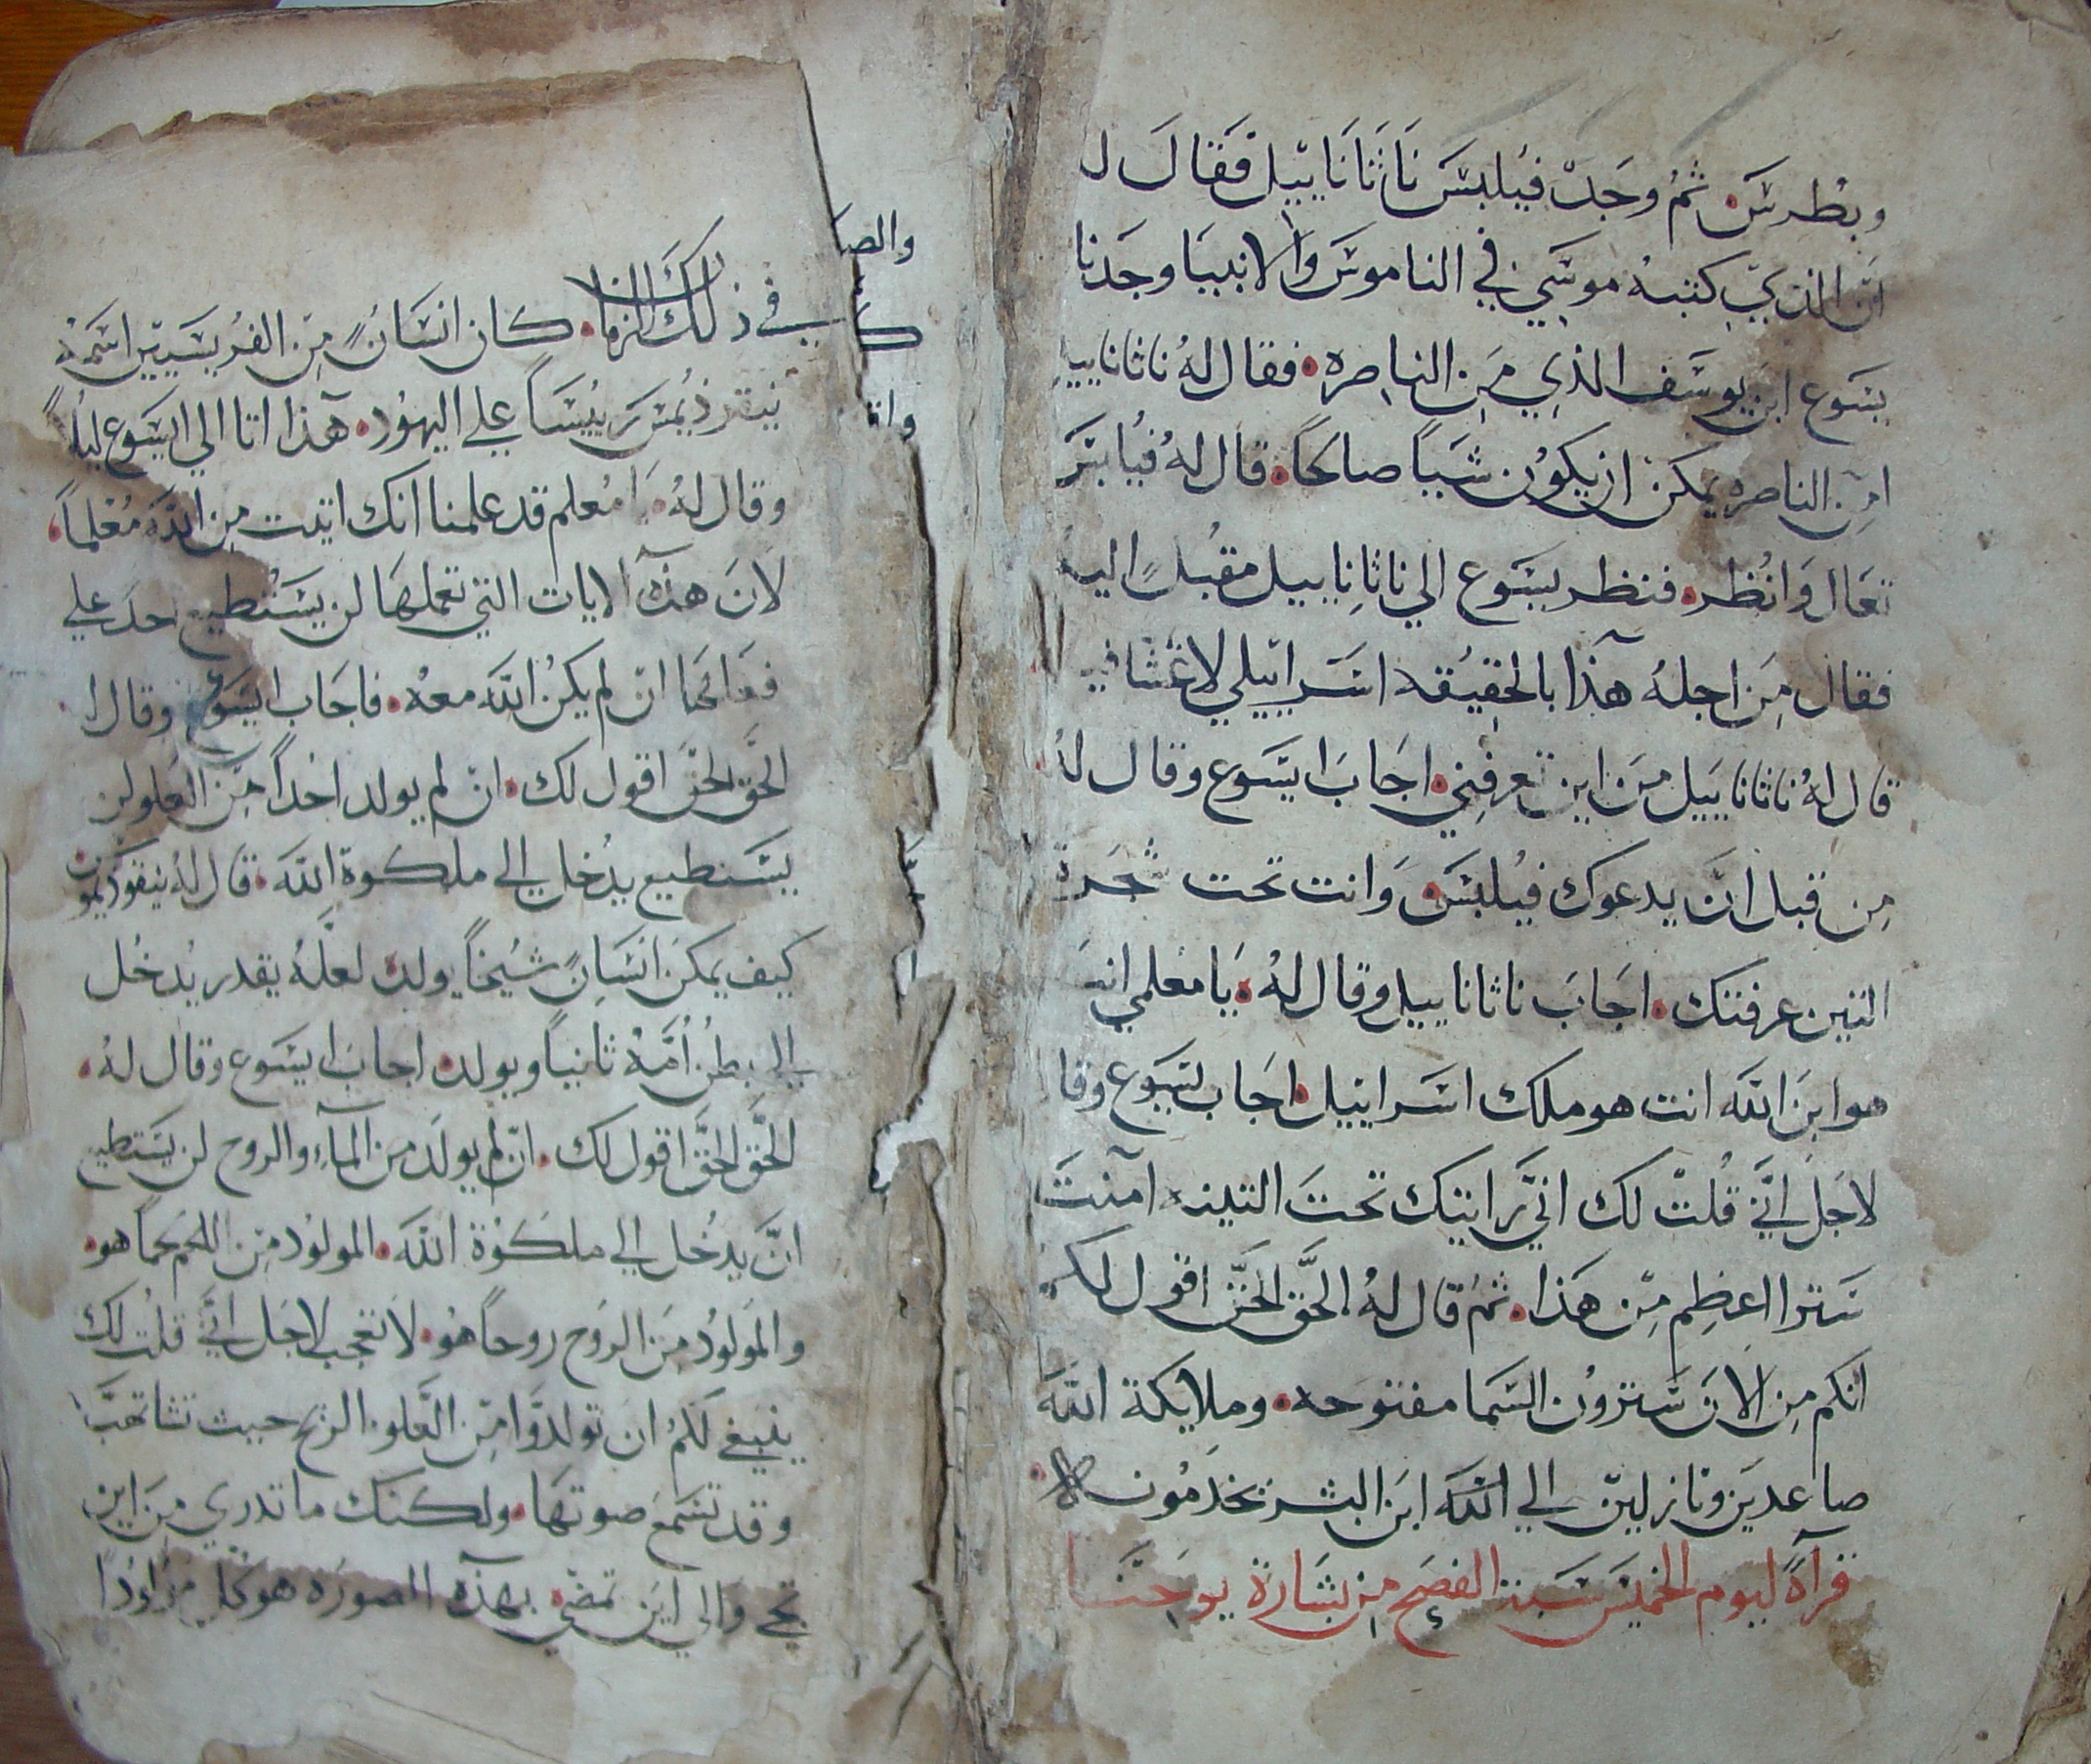 وبطرس ثم وجد فيلبس ناثانابيل فقال ل
ان الذي كتبه موسى في الناموس والانبيا وجدنا
يسوع ابن يوسف الذي من الناصره فقال له ناثاناييل
امن الناصره يمكن ان يكون شيا صالحا قال له فيلبس
تعال وانظر فنظر يسوع الي ناثاناييل مقبلا اليه
فقال من اجله هذا بالحقيقه اسراييلي لا غش فيه
قال له ناثاناييل من اين تعرفني اجاب ايسوع وقال له
من قبل ان يدعوك فيلبس وانت تحت شجرة
التين عرفتك اجاب ناثاناييل وقال له يا معلمي انت
هو ابن الله انت هو ملك اسراييل اجاب ايسوع وقا
لاجل اني قلت لك اني رايتك تحت التينه آمنت
سترا اعظم من هذا ثم قال له الحق الحق اقول لكم
انكم من الان سترون السما مفتوحه وملايكة الله
صاعدين ونازلين الي الله ابن البشر يخدمون
قرآة ليوم الخميس سبة الفصح من بشارة يوحنا
والص
ك
وان
في ذلك الزمان كان انسان من الفريسيين اسمه
نيقوذيمس رييسا علي اليهود هذا اتا الي ايسوع ليلا
وقال له يا معلم قد علمنا انك اتيت من الله معلما
لان هذه الايات التي تعملها لن يستطيع احد علي
فعالها ان لم يكن الله معه فاجاب ايسوع وقال ا
الحق الحق اقول لك ان لم يولد احدا من العلو لن
يستطيع يدخل الي ملكوة الله قال له نيقوذيموس
كيف يمكن انسان شيخا يولد لعله يقدر يدخل
الي بطن امه ثانيا ويولد اجاب ايسوع وقال له
الحق الحق اقول لك ان لم يولد من المآء والروح لن يستطيع
ان يدخل الي ملكوة الله المولود من اللحم لحما هو
والمولود من الروح روحا هو لا تعجب لاجل اني قلت لك
ينبغي لكم ان تولدوا من العلو الريح حيث تشا تهب
وقد تسمع صوتها ولكنك ما تدري من اين
تجي والي اين تمضي بهذه الصوره هو كل مولودا